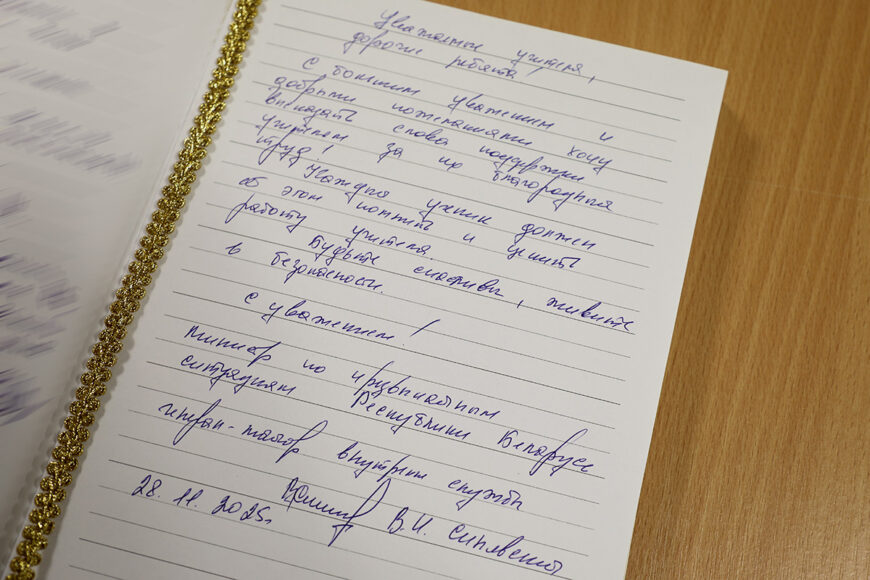 Уважаемые учителя,
дорогие ребята!
С большим уважением и
добрыми пожеланиями хочу
высказать слова поддержки
учителям за их благородный
труд!
Каждый ученик должен
об этом помнить и ценить
работу учителя.
Будьте счастливы, живите
в безопасности.
С уважением!
Министр по чрезвычайным
ситуациям Республики Беларусь
генерал-майор внутрен службы
28.11.2025г. В.И. Синявский